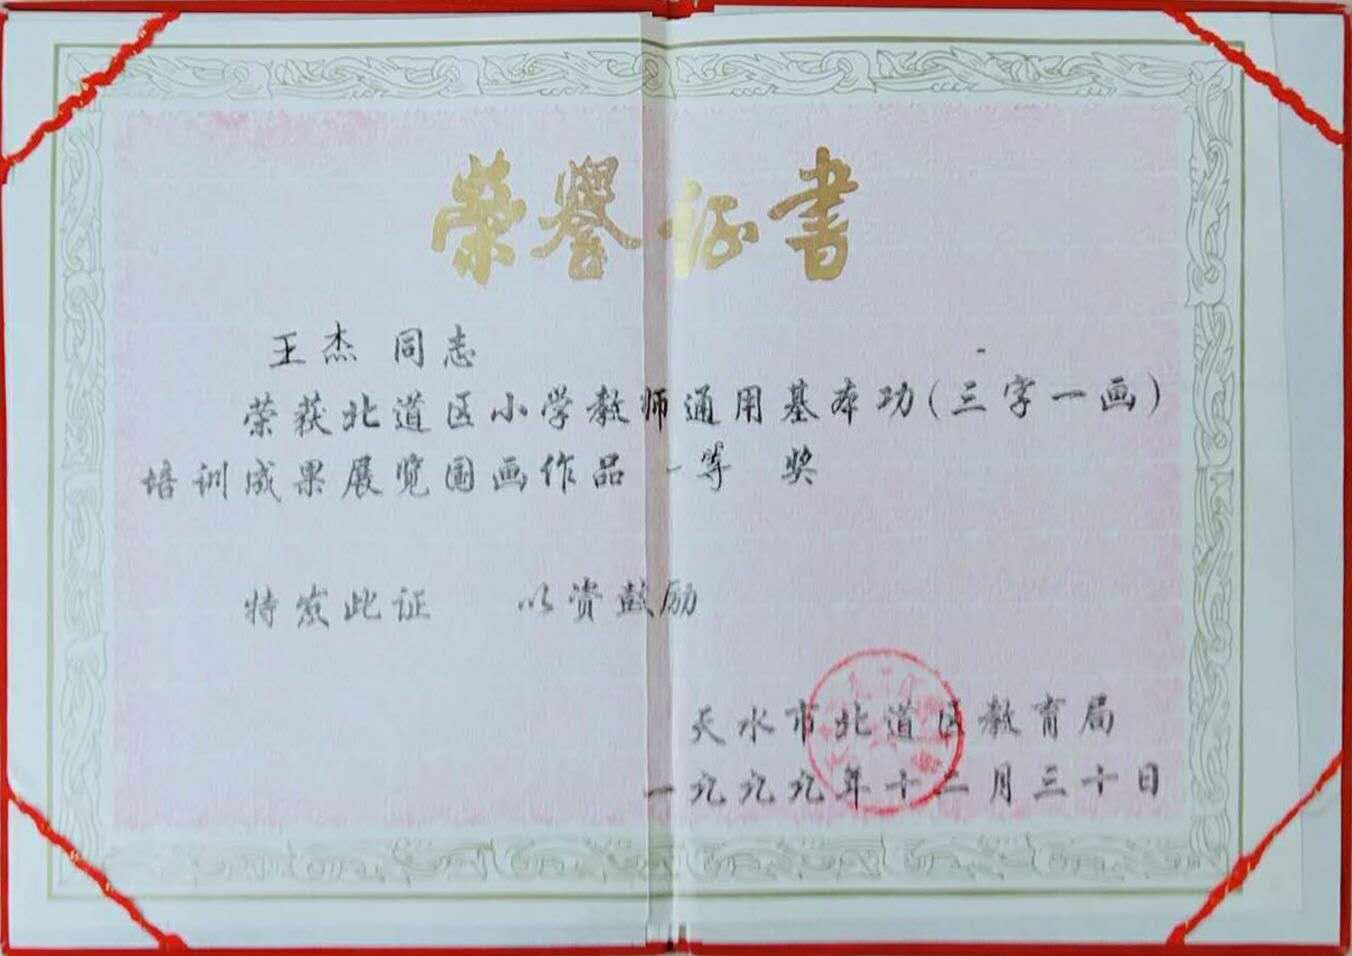 荣誉证书
王杰 同志
荣获北道区小学教师通用基本功(三字一画)
培训成果展览国画作品一等 奖
特发此证 以资鼓励
天水市北道区教育局
一九九九年十二月三十日